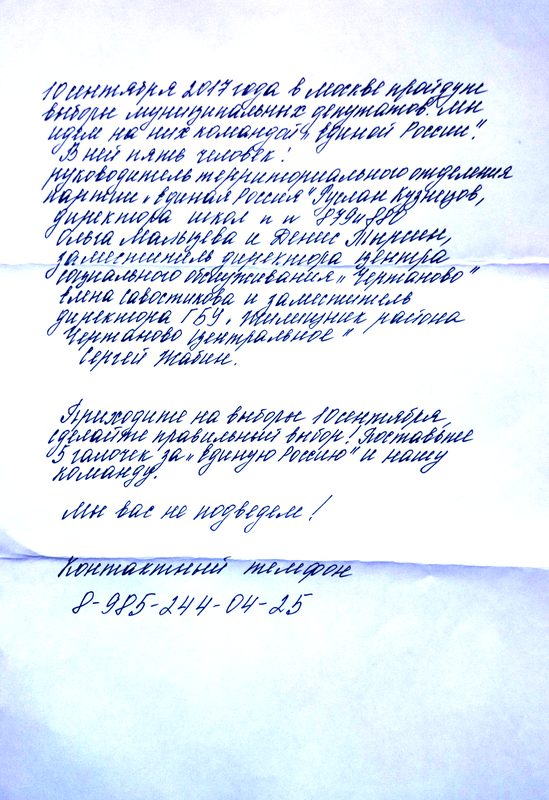 10 сентября 2017 года в Москве пройдут
выборы муниципальных депутатов. Мы
идем на них командой „Единой России".
В ней пять человек:
руководитель территориального отделения
партии „Единая Россия" Руслан Кузнецов,
директора школ n n 879 и 880
Ольга Мальцева и Денис Тирсин,
заместитель директора центра
социального обслуживания „Чертаново"
Елена Савостикова и заместитель
директора ГБУ „Жилищник района
Чертаново Центральное"
Сергей Жабин.
Приходите на выборы 10 сентября,
сделайте правильный выбор! Поставьте
5 галочек за „Единую Россию" и нашу
команду.
Мы вас не подведем!
Контактный телефон
8-985-244-04-25